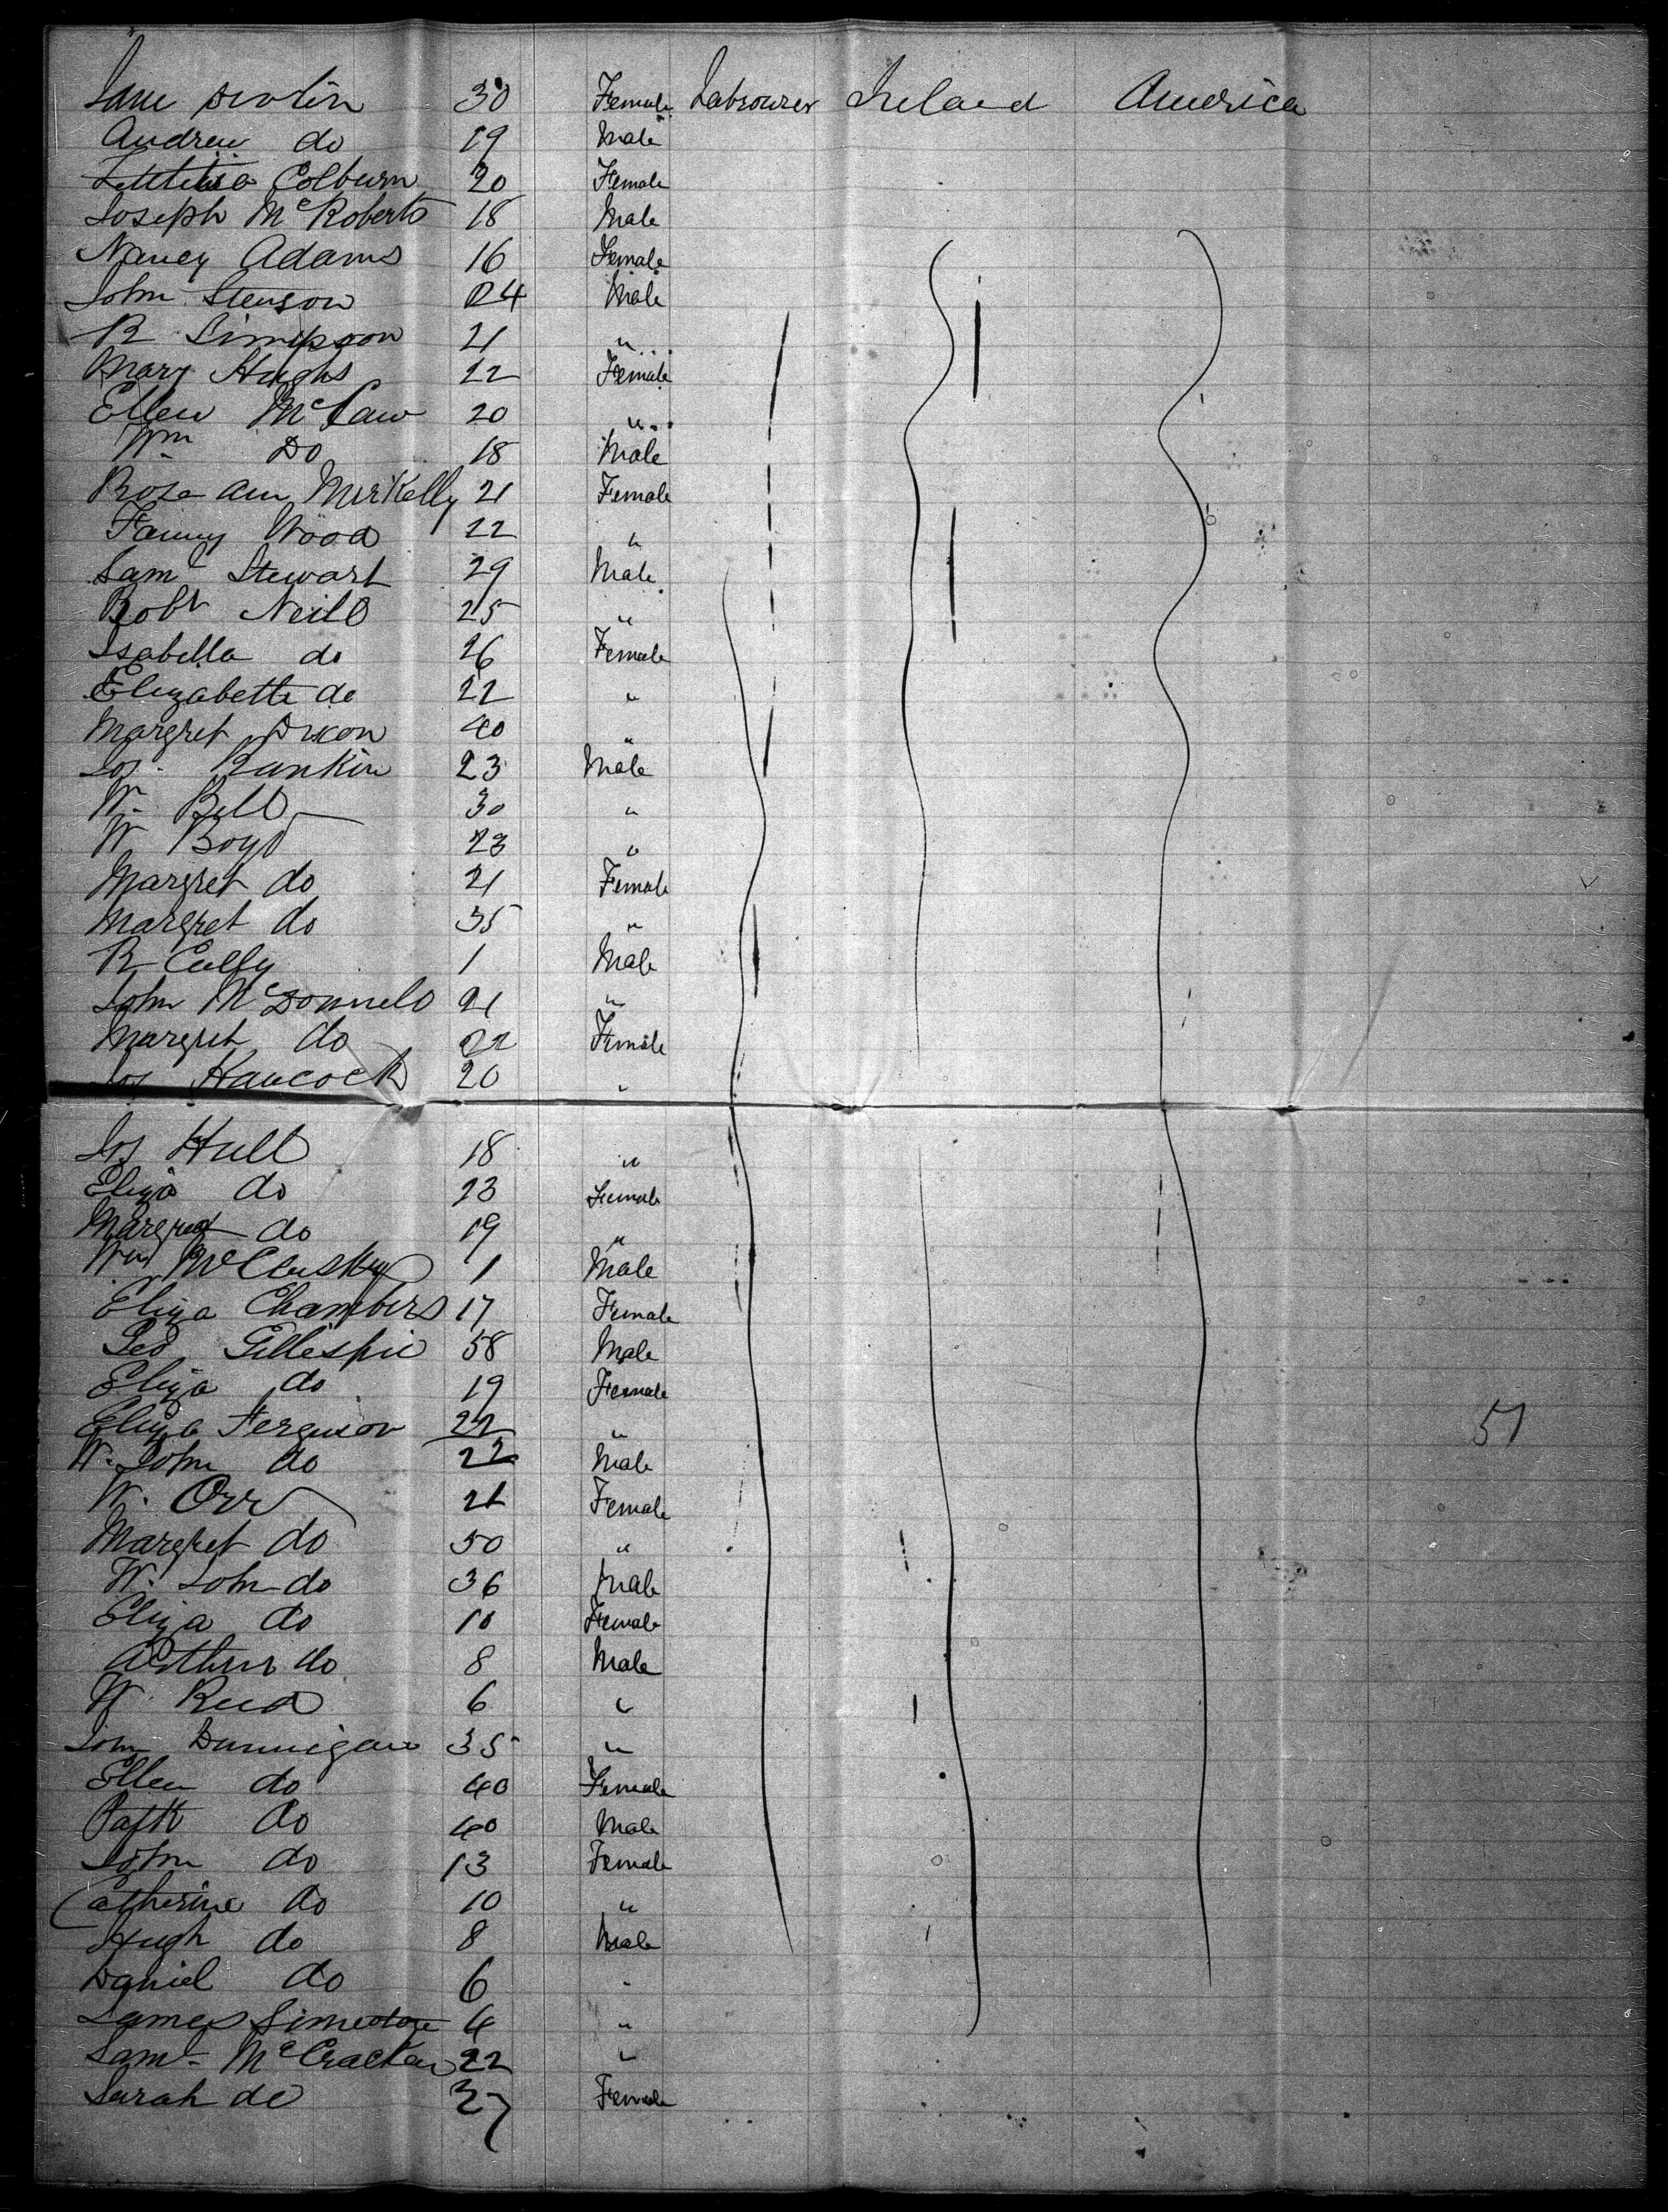 Jane Devlin 30 Female Labourer Ireland America
Andrew do 19 Male
Letitia Colburn 20 Female
Joseph McRoberts 18 Male
Nancy Adams 16 Female
John Stenson 24 Male
R Simpson 21 "
Mary Hughs 22 Female
Ellen McCaw 20 "
Wm Do 18 Male
Rose ann Kelly 21 Female
Fanny Wood 22 "
Saml Stewart 29 Male
Robt Neill 25 "
Isabella do 26 Female
Elizabeth do 22 "
Margret Dixon 40 "
Jos. Rankin 23 Male
W. Bell 30 "
W Boyd 23 "
Margret do 21 Female
Margret do 35 "
R Cully 1 Male
John McDonnell 21 "
Margret do 22 Female
Jos Hancock 20 "
Jos Hull 18 "
Eliza do 23 Female
Margret do 19 "
Wm McClusky 1 Male
Eliza Chambers 17 Female
Geo Gillespie 58 Male
Eliza do 19 Female
Eliza Ferguson 22 "
W. John do 22 Male
W. Orr 21 Female
Margret do 50 "
W. John do 36 Male
Eliza do 10 Female
Arthur do 8 Male
W. Reid 6 "
Dunnigan 35 "
Ellen do 40 Female
Patk do 40 Male
John do 13 Female
Catherine do 10 "
Hugh do 8 Male
Daniel do 6 "
James Limestone 4 "
Saml McCracken 22 "
Sarah do 27 Female
51